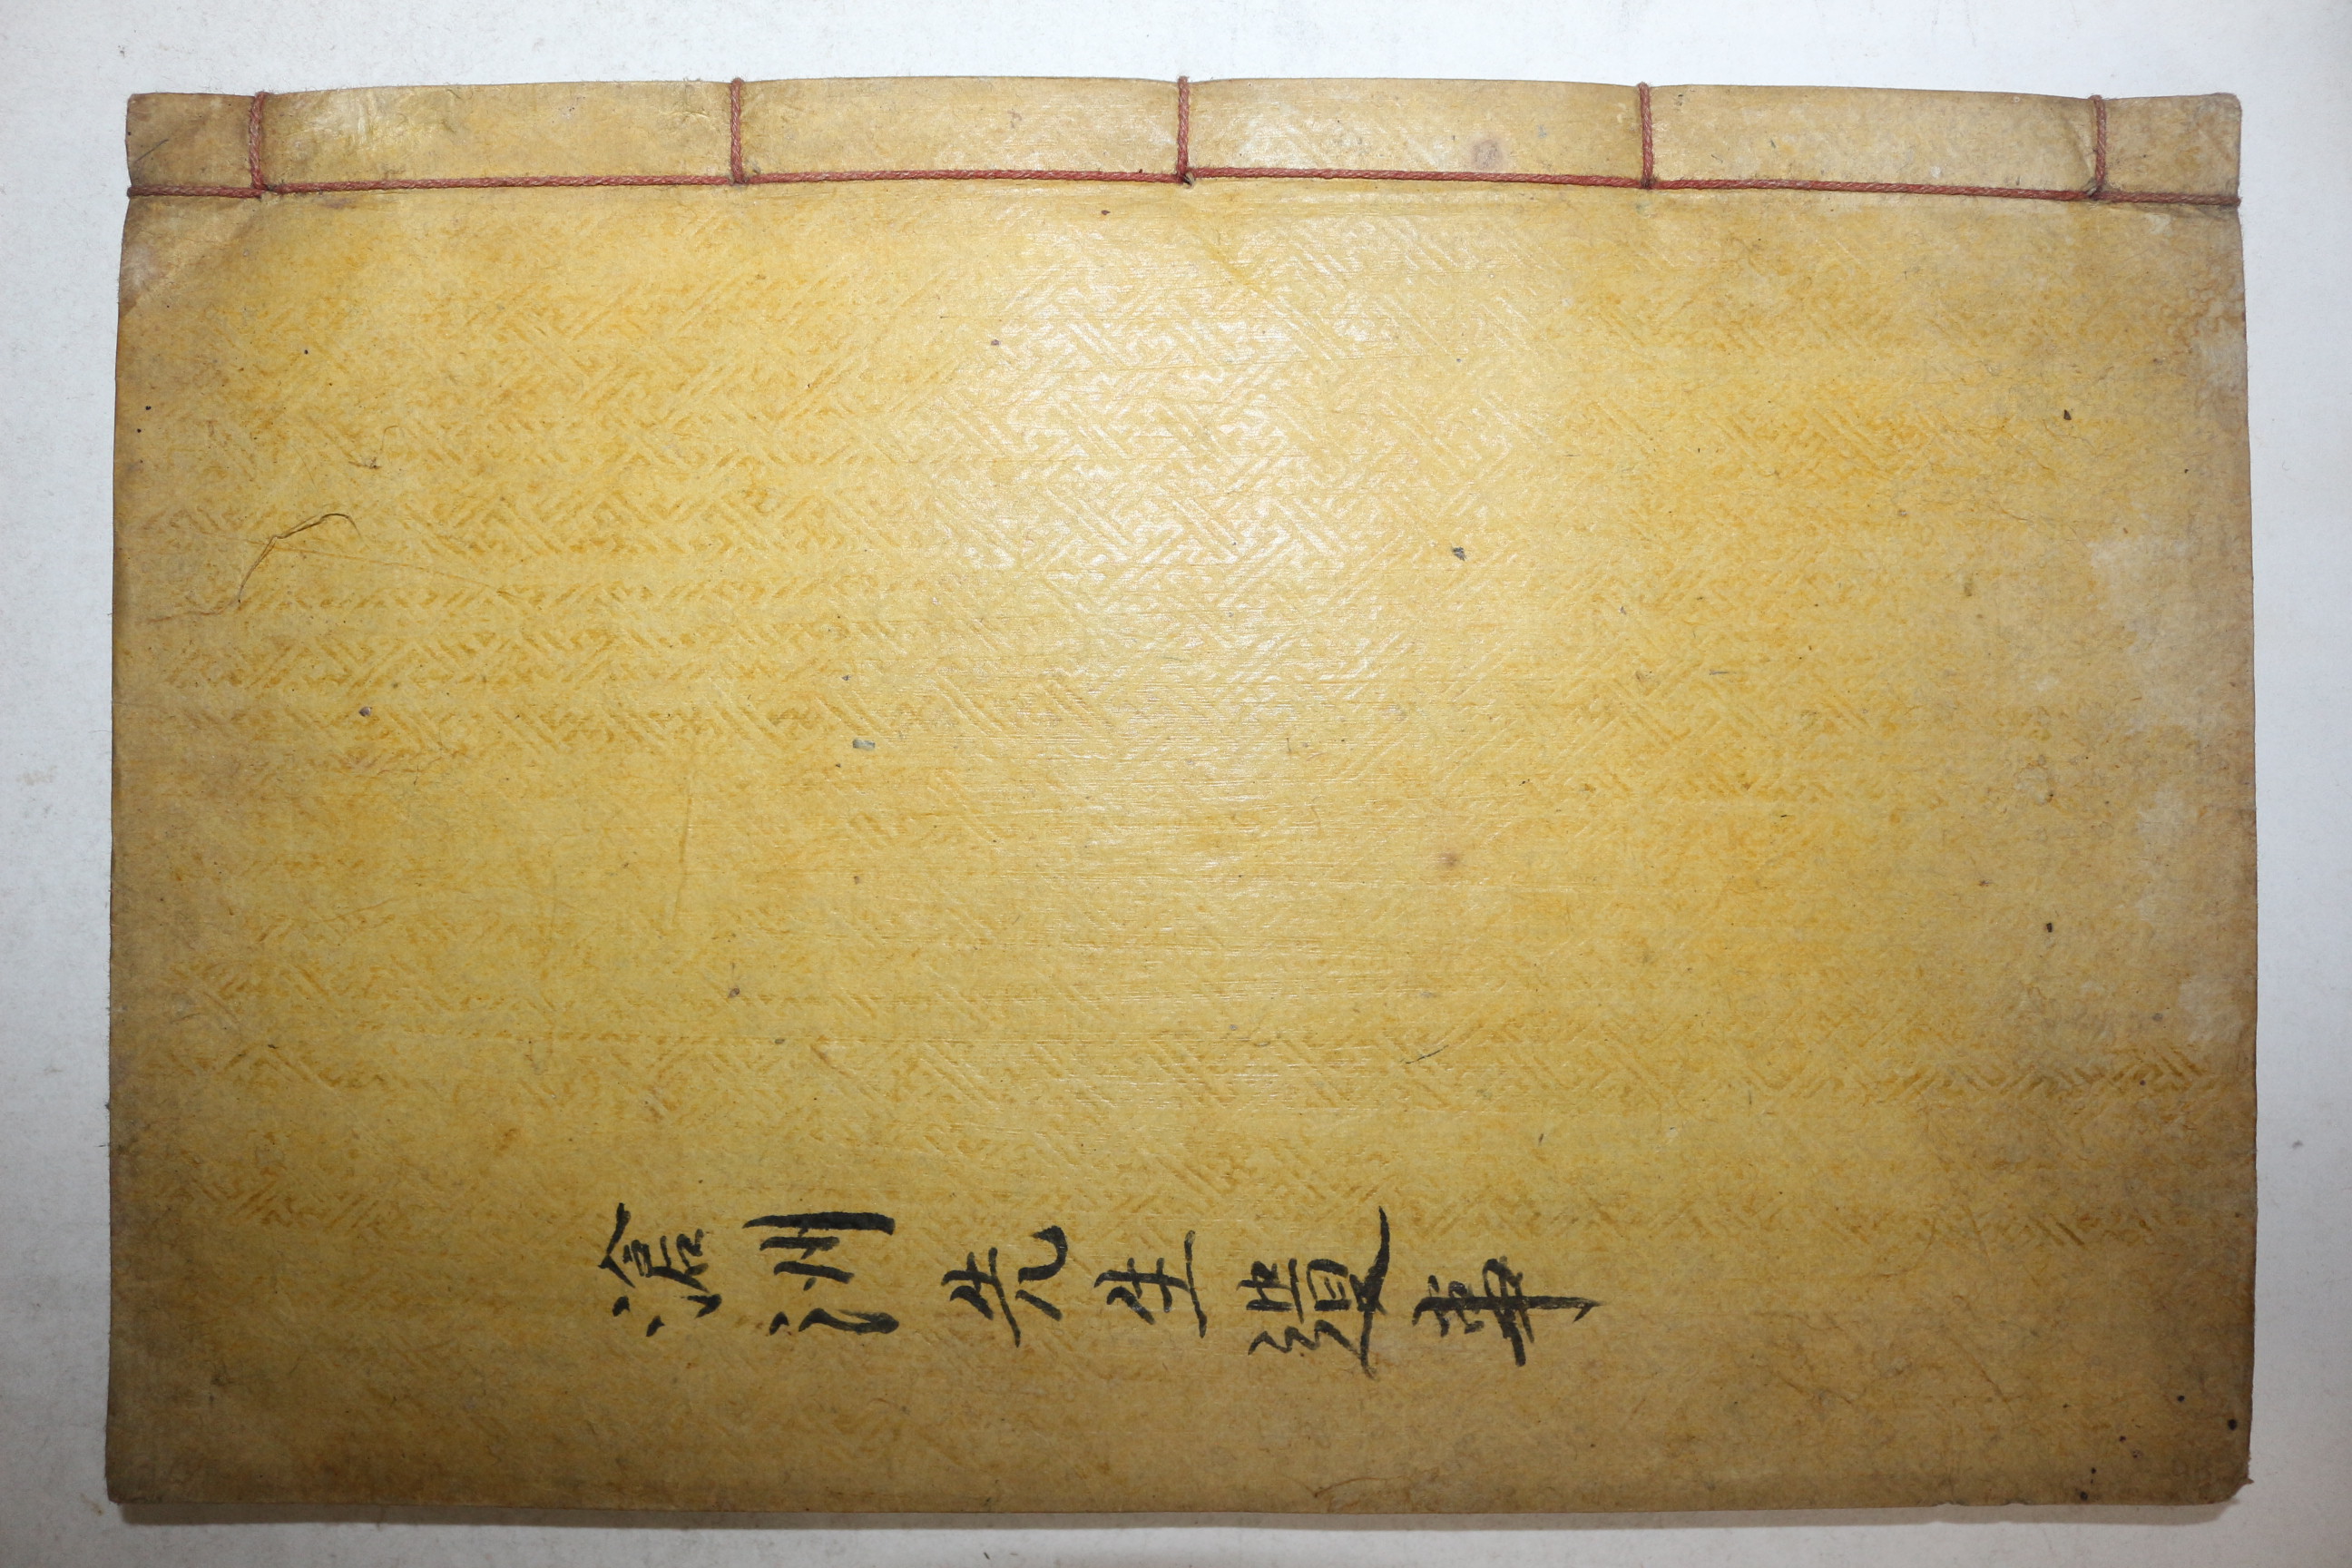 滄洲先生遺事